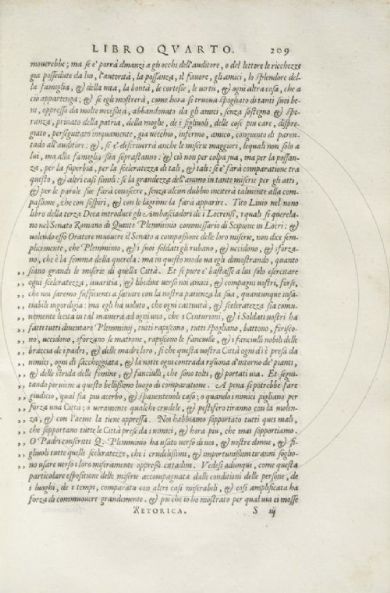 LIBRO QVARTO. 209
mouerebbe; ma se e' porrà dinanzi a gli occhi dell'auditore, o del lettore le ricchezze
gia possedute da lui, l'autorità, la possanza, il fauore, gli amici, lo splendore del-
la famiglia, & della vita, la bontà, le cortesie, le uertù, & ogni altra cosa, che a
ciò appartenga; & se egli mostrerà, come hora si truoua spogliato di tanti suoi be
ni, oppresso da molte necessità, abbandonato da gli amici, senza sostegno & spe-
ranza, priuato della patria, della moglie, de i figliuoli, delle cose piu care, disprez-
giato, perseguitato iniquamente, gia uecchio, infermo, amico, congiunto di paren-
tado all'auditore. &, se e' descriuerrà anche le miserie maggiori, lequali non solo a
lui, ma alla famiglia sua soprastanno: & ciò non per colpa sua, ma per la possan-
za, per la superbia, per la sceleratezza di tali, & tali: se e' farà comparatione tra
questo, & altri casi simili: se la grandezza dell'animo in tante miserie per gli atti,
& per le parole sue farà conoscere, senza alcun dubbio inciterà talmente alla com-
passione, che con sospiri, & con le lagrime la farà apparire. Tito Liuio nel nono
libro della terza Deca introduce gli Ambasciadori de i Locrensi, i quali si querela-
no nel Senato Romano di Quinto Pleminnio commissario di Scipione in Locri: &
uolendo esso Oratore mouere il Senato a compassione delle loro miserie, non dice sem-
plicemente, che Pleminnio, & i suoi soldati gli rubano, & uccidono, & sforza-
no, che è la somma della querela: ma in questo modo ua egli dimostrando, quanto
siano grandi le miserie di quella Città. Et se pure e' bastasse a lui solo esercitare
ogni sceleratezza, auaritia, & libidine verso noi amici, & compagni uostri, forse,
che noi saremo sufficienti a satiare con la nostra patienza la sua, quantunque insa-
tiabile ingordigia: ma egli ha uoluto, che ogni cattiuità, & sceleratezza sia comu-
nemente lecita in tal maniera ad ogni uno, che i Centurioni, & i Soldati uostri ha
fatti tutti diuentare Pleminnij, tutti rapiscono, tutti spogliano, battono, ferisco-
no, uccidono, sforzano le matrone, rapiscono le fanciulle, & i fanciulli nobili delle
braccia de i padri, & delle madri loro, si che questa nostra Città ogni dì è presa da
nimici, ogni dì saccheggiata, & la notte ogni contrada risuona d'intorno de' pianti,
& delle strida delle femine, & fanciulli, che sono tolti, & portati uia. Et segui-
tando peruiene a questo bellissimo luogo di comparatione. A pena si potrebbe fare
giudicio, qual sia piu acerbo, & spauenteuole caso, o quando i nimici pigliano per
forza una Città; o ueramente qualche crudele, & pestifero tiranno con la uiolen-
za, & con l'arme la tiene oppressa. Noi habbiamo sopportato tutti quei mali,
che sopportano tutte le Città prese da i nimici, & hora piu, che mai sopportiamo.
O Padri conscritti Q. Pleminnio ha usato verso di noi, & nostre donne, & fi-
gliuoli tutte quelle sceleratezze, che i crudelissimi, & importunissimi tiranni soglio-
no usare verso i loro miseramente oppressi cittadini. Vedesi adunque, come questa
particolare espositione delle miserie accompagnata dalle conditioni delle persone, de
i luoghi, de i tempi, comparata con altri casi miserabili, & così amplificata ha
forza di commouere grandemente. & più che io ho mostrato per qual uia ci mosse
RETORICA. S iij